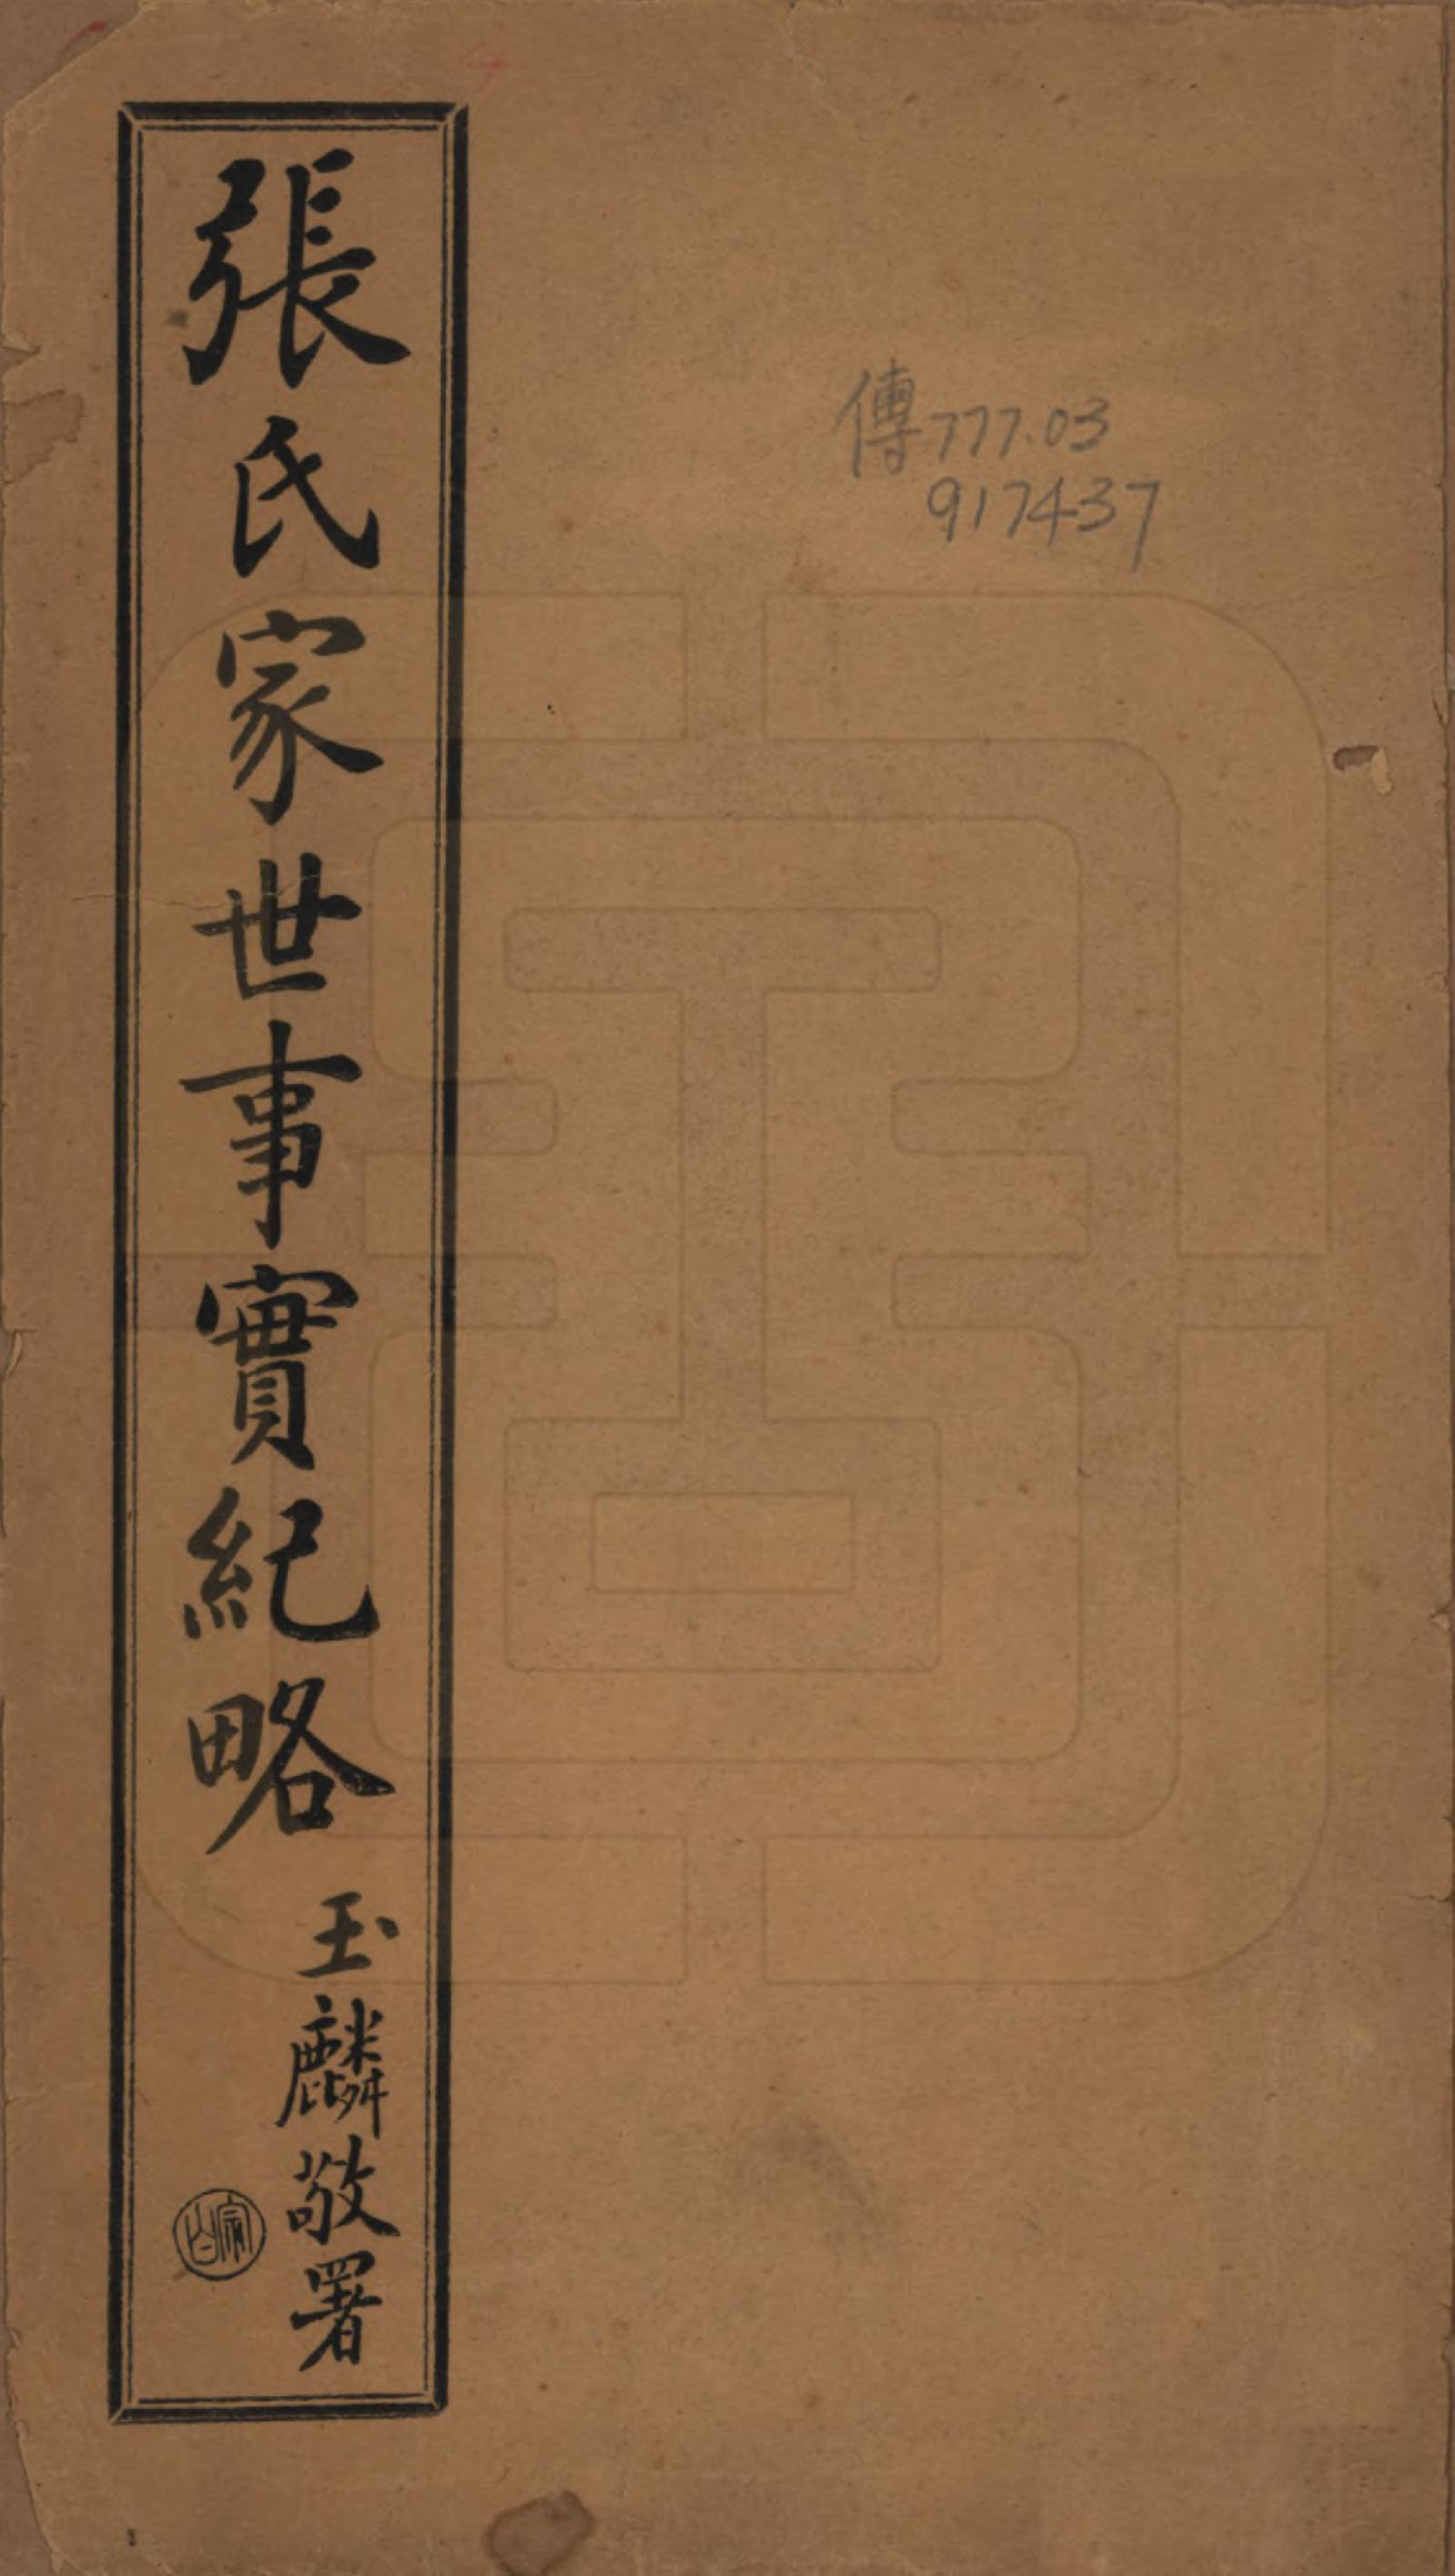 傳777.03
917437
張氏家世事實紀略
玉麟敬署